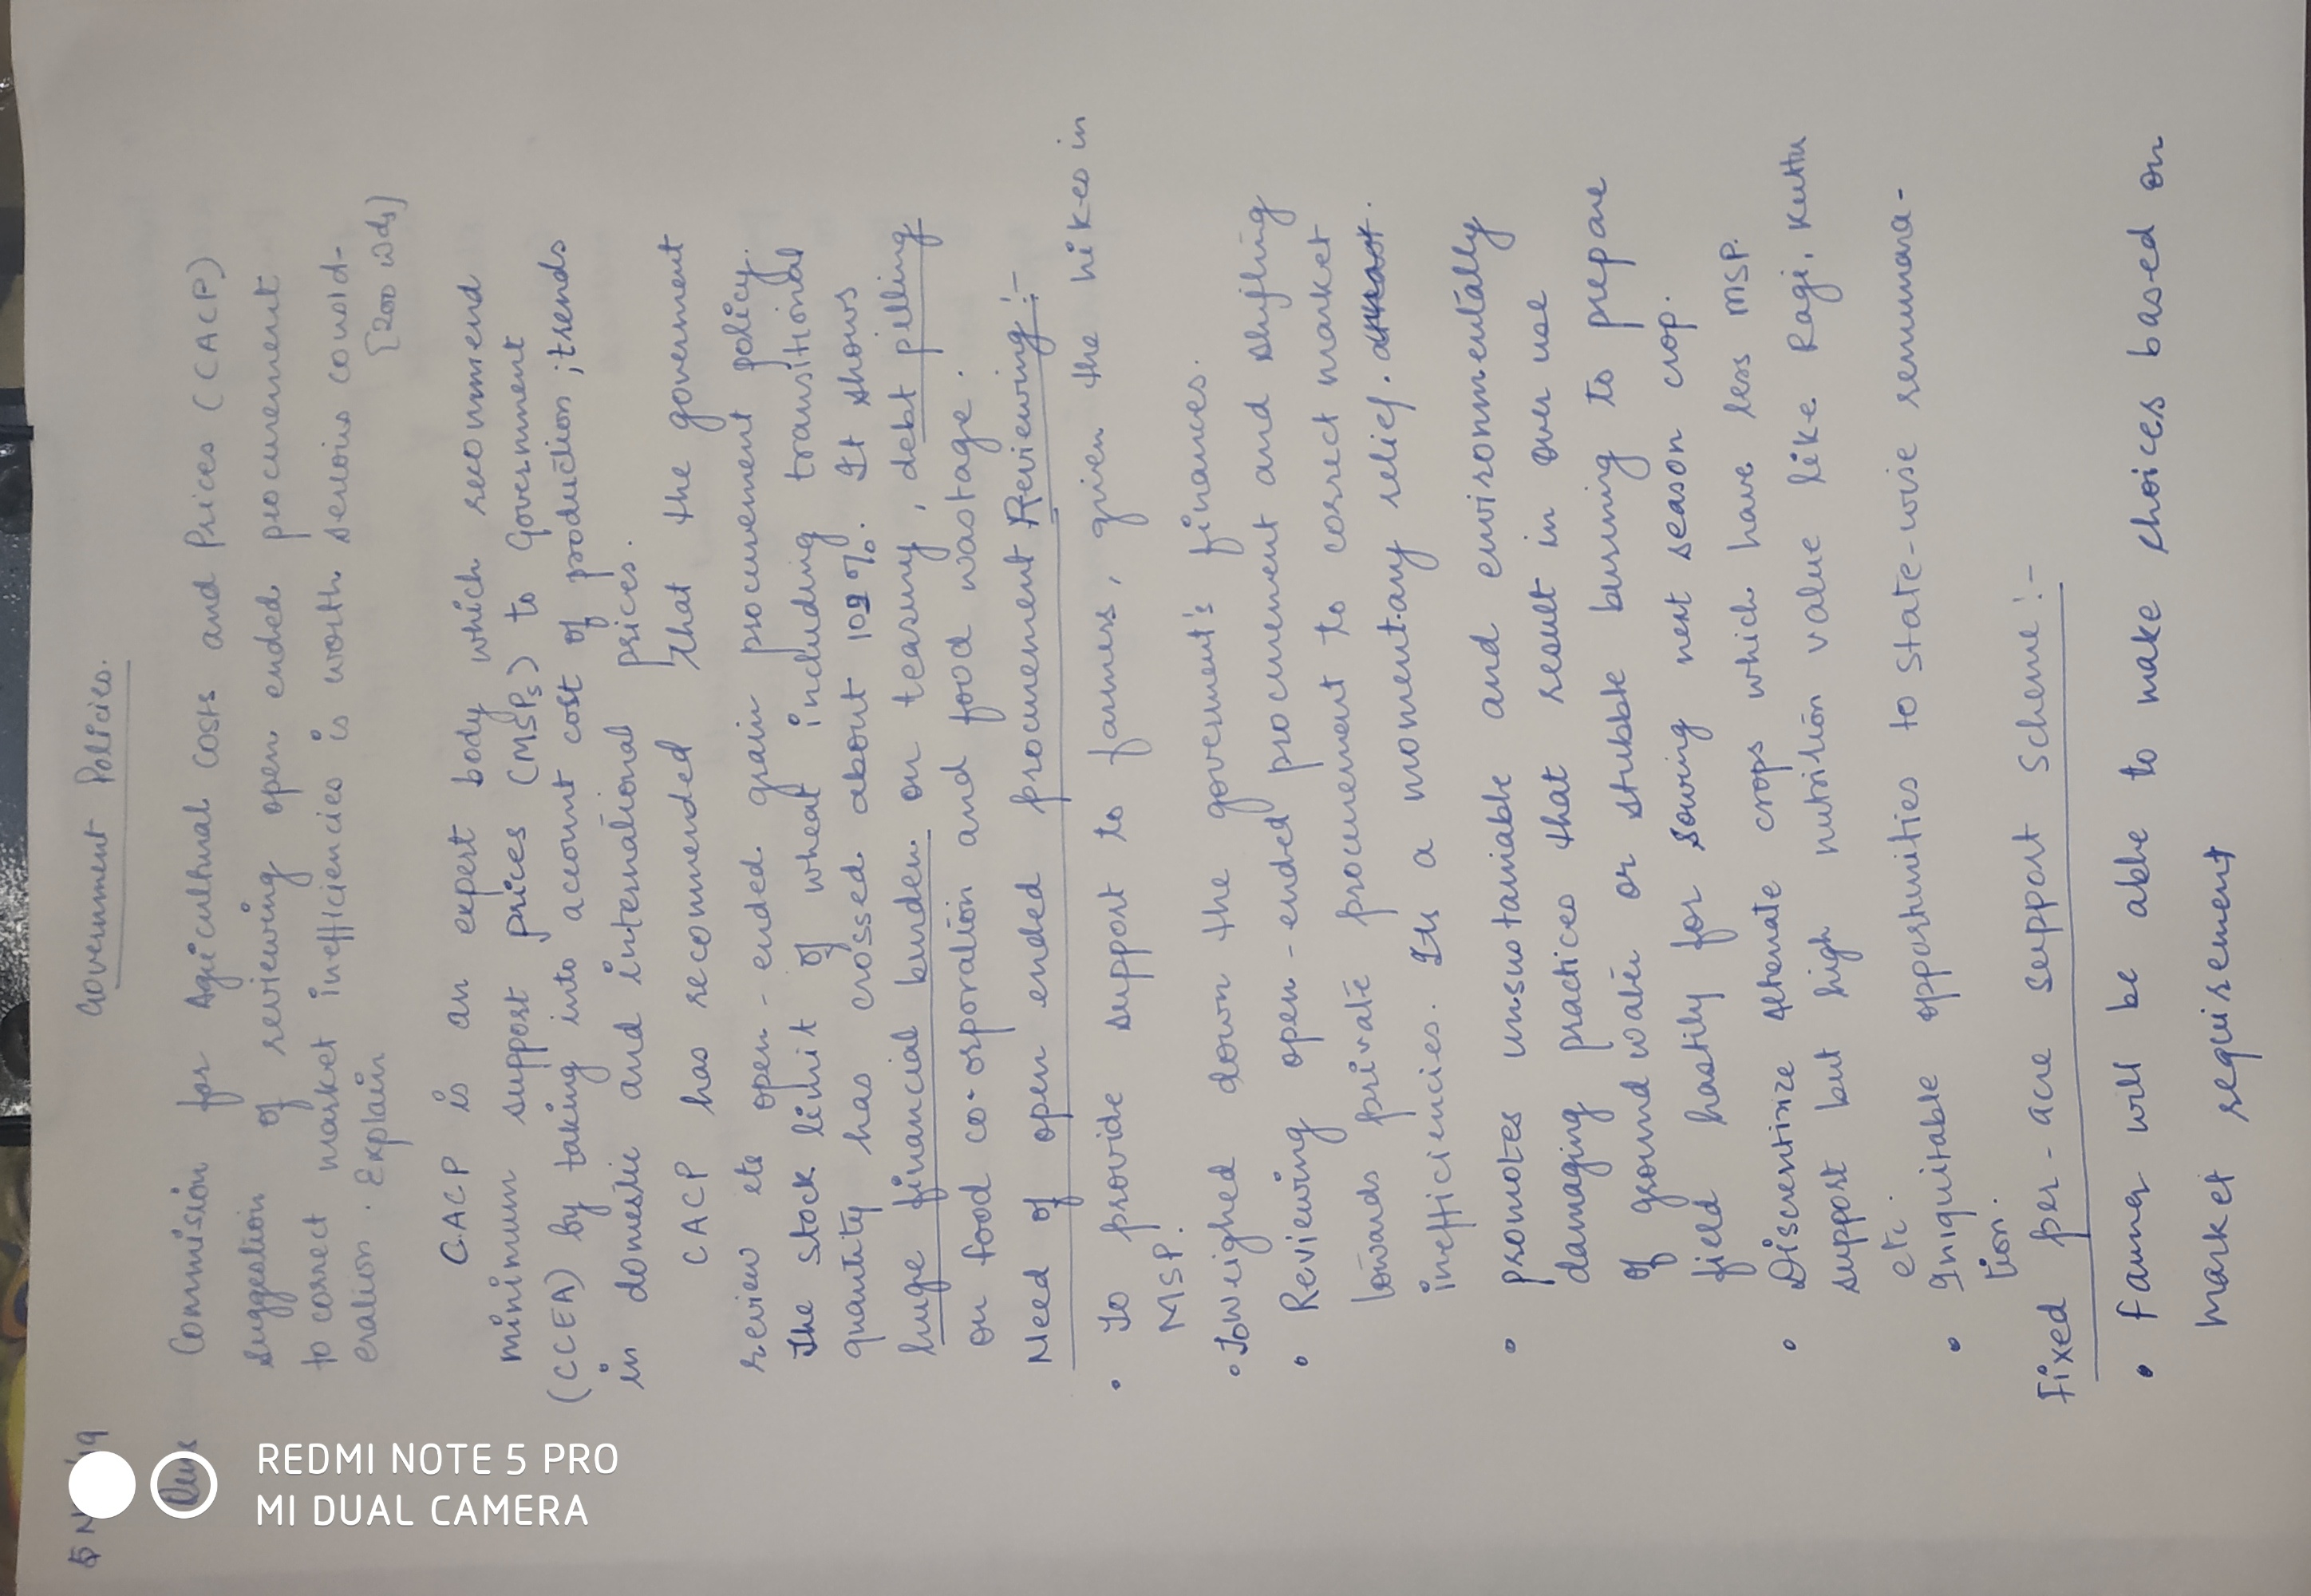 Government Policies.
Commision for Agricultural costs and Prices (CACP)
suggestion of reviewing open ended procurement
to correct market inefficiencies is worth serious consid-
eration. Explain [200 wds]
CACP is an expert body which recommend
minimum support prices (MSPs) to Government
(CCEA) by taking into account cost of production; trends
in domestic and international prices.
CACP has recommended that the government
review its open-ended grain procurement policy.
The stock limit of wheat including transitional
quantity has crossed about 102%. It shows
huge financial burden on teasury, debt pilling
on food co-orporation and food wastage.
Need of open ended procurement Reviewing:-
• To provide support to farmers, given the hikes in
MSP.
• Toweighed down the government's finances.
• Reviewing open-ended procurement and shifting
towards private procurement to correct market
inefficiencies. Its a momentary relief.
• promotes unsustainable and environmentally
damaging practices that result in over use
of ground water or stubble burning to prepare
field hastily for sowing next season crop.
• Discrentinize alternate crops which have less MSP.
support but high nutrition value like Ragi, Kuttu
etc.
• Iniquitable opportunities to state-wise remunara-
tion.
Fixed per-acre support scheme:-
• farmer will be able to make choices based on
market requirement
REDMI NOTE 5 PRO
MI DUAL CAMERA